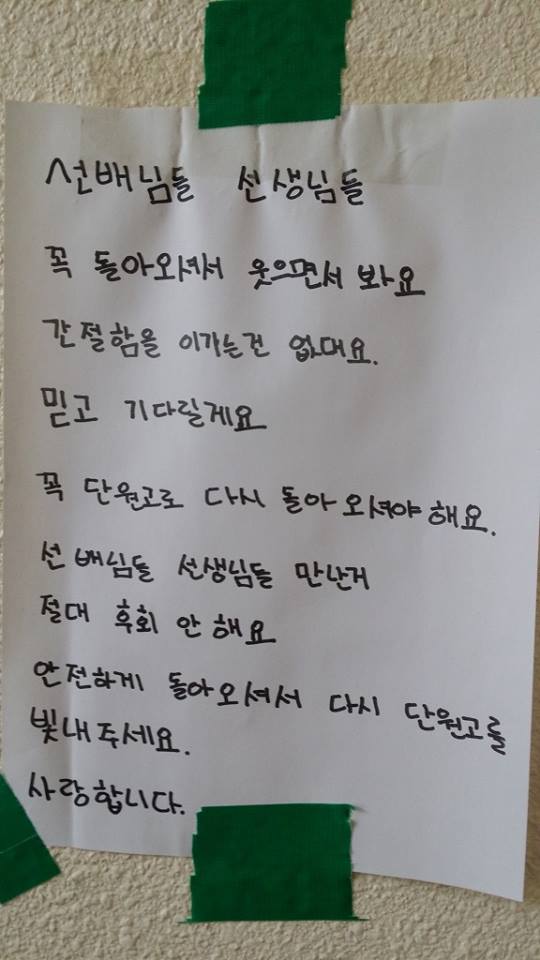 선배님들 선생님들
꼭 돌아오셔서 웃으면서 봐요
간절함을 이기는건 없대요.
믿고 기다릴게요
꼭 단원고로 다시 돌아 오셔야 해요.
선배님들 선생님들 만난거
절대 후회 안 해요
안전하게 돌아오셔서 다시 단원고를
빛내주세요.
사랑합니다.